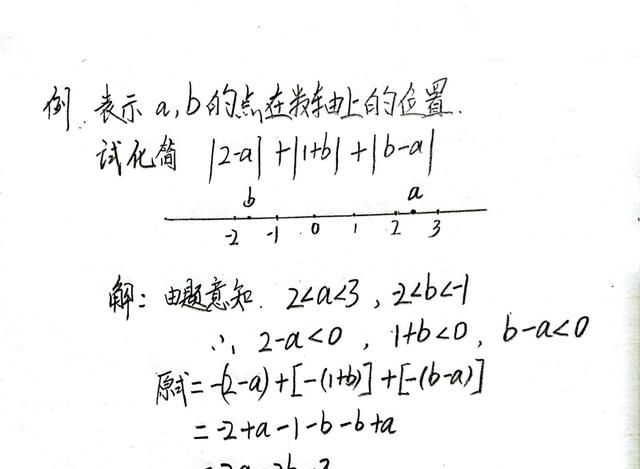 例. 表示 a,b 的点在数轴上的位置.
试化简 |2-a|+|1+b|+|b-a|
b a
-2 -1 0 1 2 3
解: 由题意知. 2<a<3, 2<b<-1
∴ 2-a<0, 1+b<0, b-a<0
原式=-(2-a)+[-(1+b)]+[-(b-a)]
=-2+a-1-b-b+a
=2a-2b-3